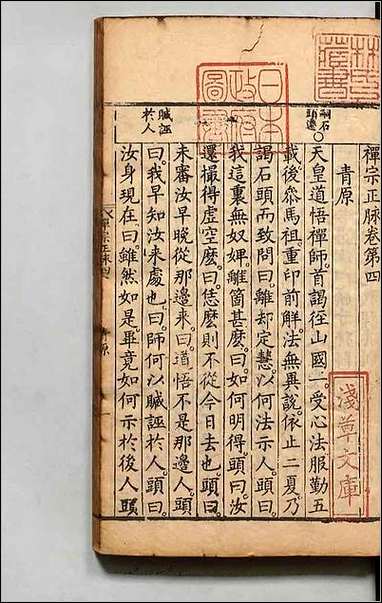 禪宗正脉卷第四
青原
天皇道悟禪師。首謁徑山國一。受心法服勤五
載後叅馬祖。重印前解。法無異說。依止二夏。乃
謁石頭。而致問曰。離却定慧。以何法示人。頭曰。
我這裏無奴婢。離箇甚麼。曰。如何明得。頭曰。汝
還撮得虛空麼。曰。恁麼則不從今日去也。頭曰。
未審汝早晚從那邊來。曰。道悟不是那邊人。頭
曰。我早知汝來處也。曰。師何以贓誣於人。頭曰。
汝身現在。曰。雖然如是。畢竟如何示於後人。頭
嗣石
頭遷
贓誣
於人
日本
政府
圖書
林氏
藏書
淺草文庫
禪宗正脉四
青原